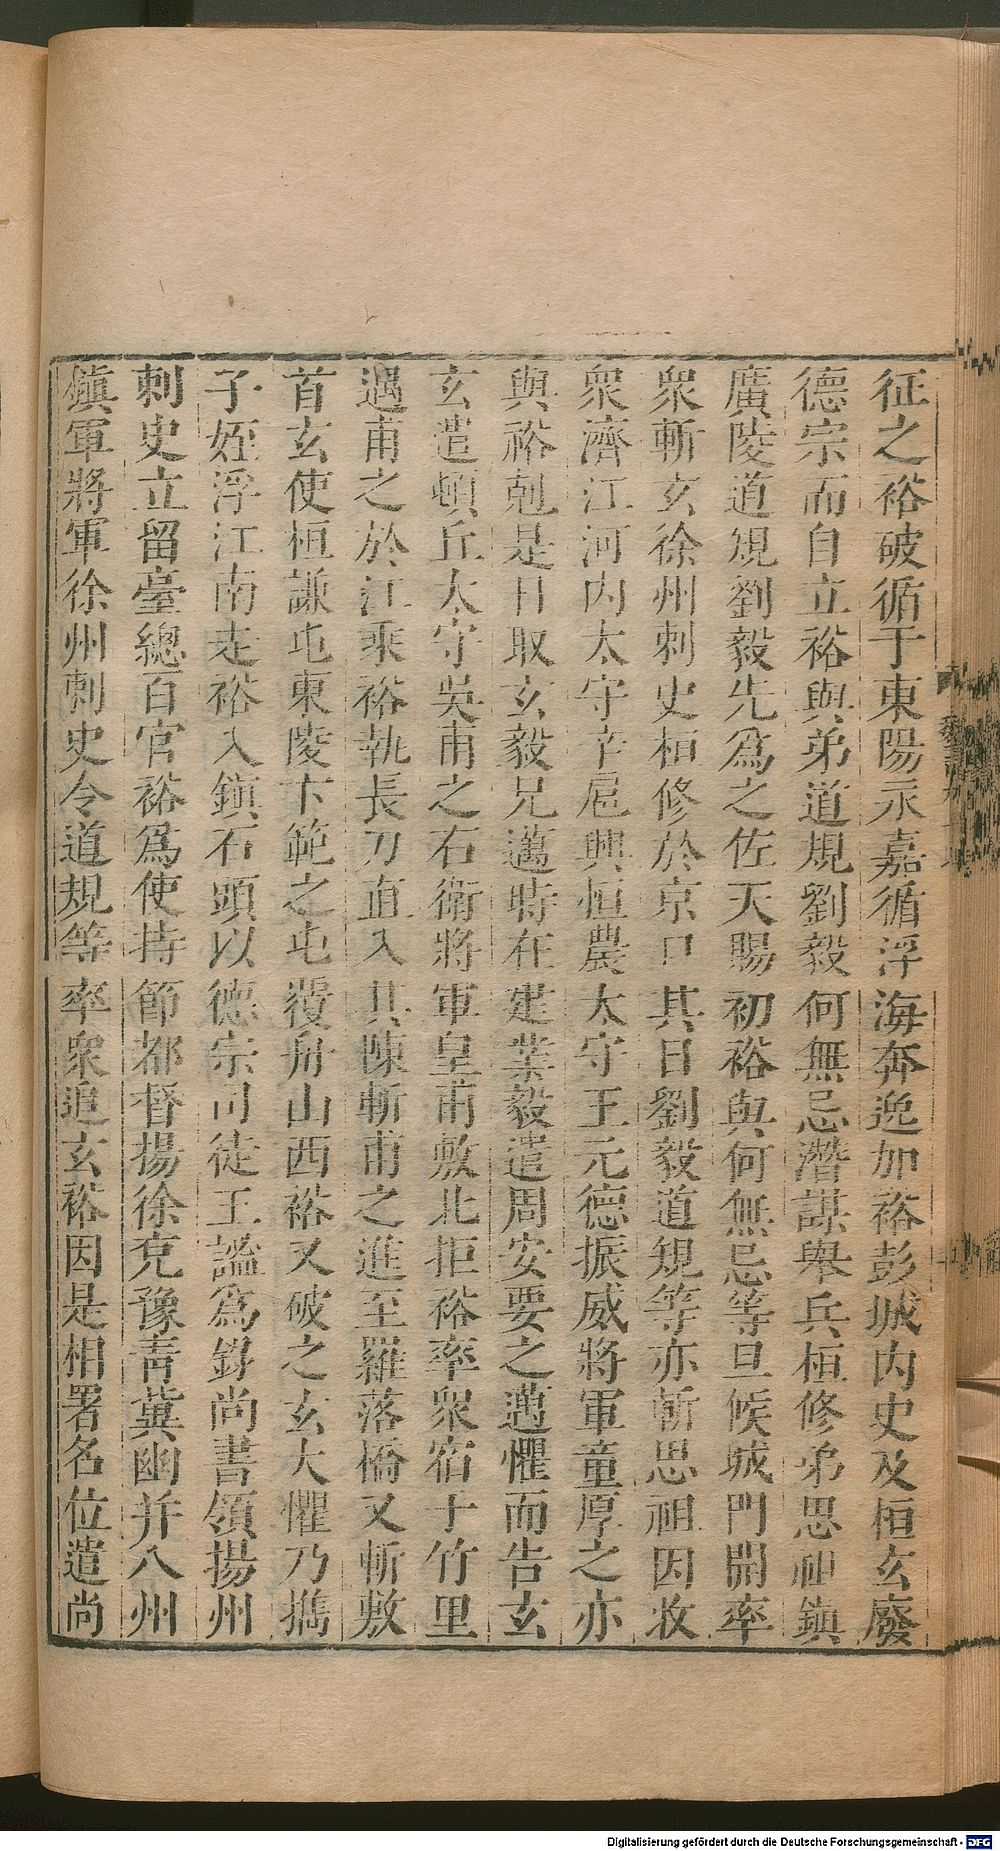 征之裕破循于東陽永嘉循浮海奔逸加裕彭城内史及桓玄廢
德宗而自立裕與弟道規劉毅何無忌潛謀舉兵桓修弟思祖鎮
廣陵道規劉毅先爲之佐天賜初裕與何無忌等旦候城門開率
衆斬玄徐州刺史桓修於京口其日劉毅道規等亦斬思祖因收
衆濟江河内太守辛扈興恒農太守王元德振威將軍童厚之亦
與裕剋是日取玄毅兄邁時在建業毅遣周安要之邁懼而告玄
玄遣頓丘太守吳甫之右衛將軍皇甫敷北拒裕率衆宿于竹里
遇甫之於江乘裕執長刀直入其陳斬甫之進至羅落橋又斬敷
首玄使桓謙屯東陵卞範之屯覆舟山西裕又破之玄大懼乃攜
子姪浮江南走裕入鎮石頭以德宗司徒王謐爲錄尚書領揚州
刺史立留臺總百官裕爲使持節都督揚徐兗豫青冀幽并八州
鎮軍將軍徐州刺史令道規等率衆追玄裕因是相署名位遣尚
Digitalisierung gefördert durch die Deutsche Forschungsgemeinschaft - DFG